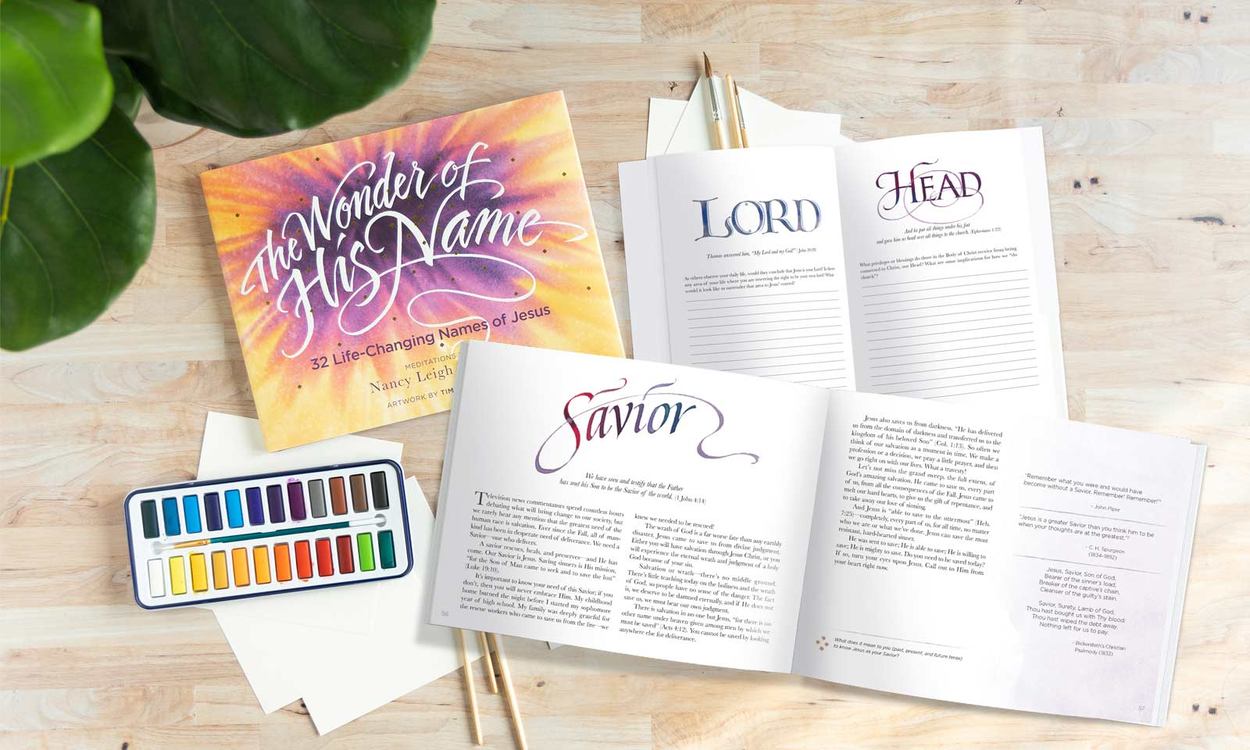 The Wonder of
His Name
32 Life-Changing Names of Jesus
MEDITATIONS
Nancy Leigh
ARTWORK BY TIM
LORD
Thomas answered him, "My Lord and my God!" (John 20:28)
As others observe your daily life, would they conclude that Jesus is your Lord? Is there
any area of your life where you are reserving the right to be your own lord? What
would it look like to surrender that area to Jesus' control?
HEAD
And he put all things under his feet
and gave him as head over all things to the church. (Ephesians 1:22)
What privileges or blessings do those in the Body of Christ receive from being
connected to Christ, our Head? What are some implications for how we "do
church"?
Savior
We have seen and testify that the Father
has sent his Son to be the Savior of the world. (1 John 4:14)
Television news commentators spend countless hours
debating what will bring change to our society, but
we rarely hear any mention that the greatest need of the
human race is salvation. Ever since the Fall, all of man-
kind has been in desperate need of deliverance. We need a
Savior—one who delivers.
A savior rescues, heals, and preserves—and He has
come. Our Savior is Jesus. Saving sinners is His mission:
"for the Son of Man came to seek and to save the lost"
(Luke 19:10).
It's important to know your need of this Savior; if you
don't, then you will never embrace Him. My childhood
home burned the night before I started my sophomore
year of high school. My family was deeply grateful for
the rescue workers who came to save us from the fire—we
knew we needed to be rescued!
The wrath of God is a far worse fate than any earthly
disaster. Jesus came to save us from divine judgment.
Either you will have salvation through Jesus Christ, or you
will experience the wrath and judgment of a holy
God because of your sin.
Salvation or wrath—there's no middle ground.
There's little teaching today on the holiness and the wrath
of God, so people have no sense of the danger. The fact
is, we deserve to be damned eternally, and if He does not
save us, we must bear our own judgment.
There is salvation in no one but Jesus, "for there is no
other name under heaven given among men by which we
must be saved" (Acts 4:12). You cannot be saved by looking
anywhere else for deliverance.
56
Jesus also saves us from darkness. "He has delivered
us from the domain of darkness and transferred us to the
kingdom of his beloved Son" (Col. 1:13). So often we
think of our salvation as a moment in time. We make a
profession or a decision, we pray a little prayer, and then
we go right on with our lives. What a travesty!
Let's not miss the grand sweep, the full extent, of
God's amazing salvation. He came to save us, every part
of us, from all the consequences of the Fall. Jesus came to
melt our hard hearts, to give us the gift of repentance, and
to take away our love of sinning.
And Jesus is "able to save to the uttermost" (Heb.
7:25)—completely, every part of us, for all time, no matter
who we are or what we've done. Jesus can save the most
resistant, hard-hearted sinner.
He was sent to save; He is able to save; He is willing to
save; He is mighty to save. Do you need to be saved today?
If so, turn your eyes upon Jesus. Call out to Him from
your heart right now.
What does it mean to you (past, present, and future tense)
to know Jesus as your Savior?
"Remember what you were and would have
become without a Savior. Remember! Remember!"
- John Piper
"Jesus is a greater Savior than you think him to be
when your thoughts are at the greatest."
- C. H. Spurgeon
(1834-1892)
Jesus, Savior, Son of God,
Bearer of the sinner's load,
Breaker of the captive's chain,
Cleanser of the guilty's stain.
Savior, Surety, Lamb of God,
Thou hast bought us with Thy blood;
Thou hast wiped the debt away,
Nothing left for us to pay.
- Bickersteth's Christian
Psalmody (1832)
57